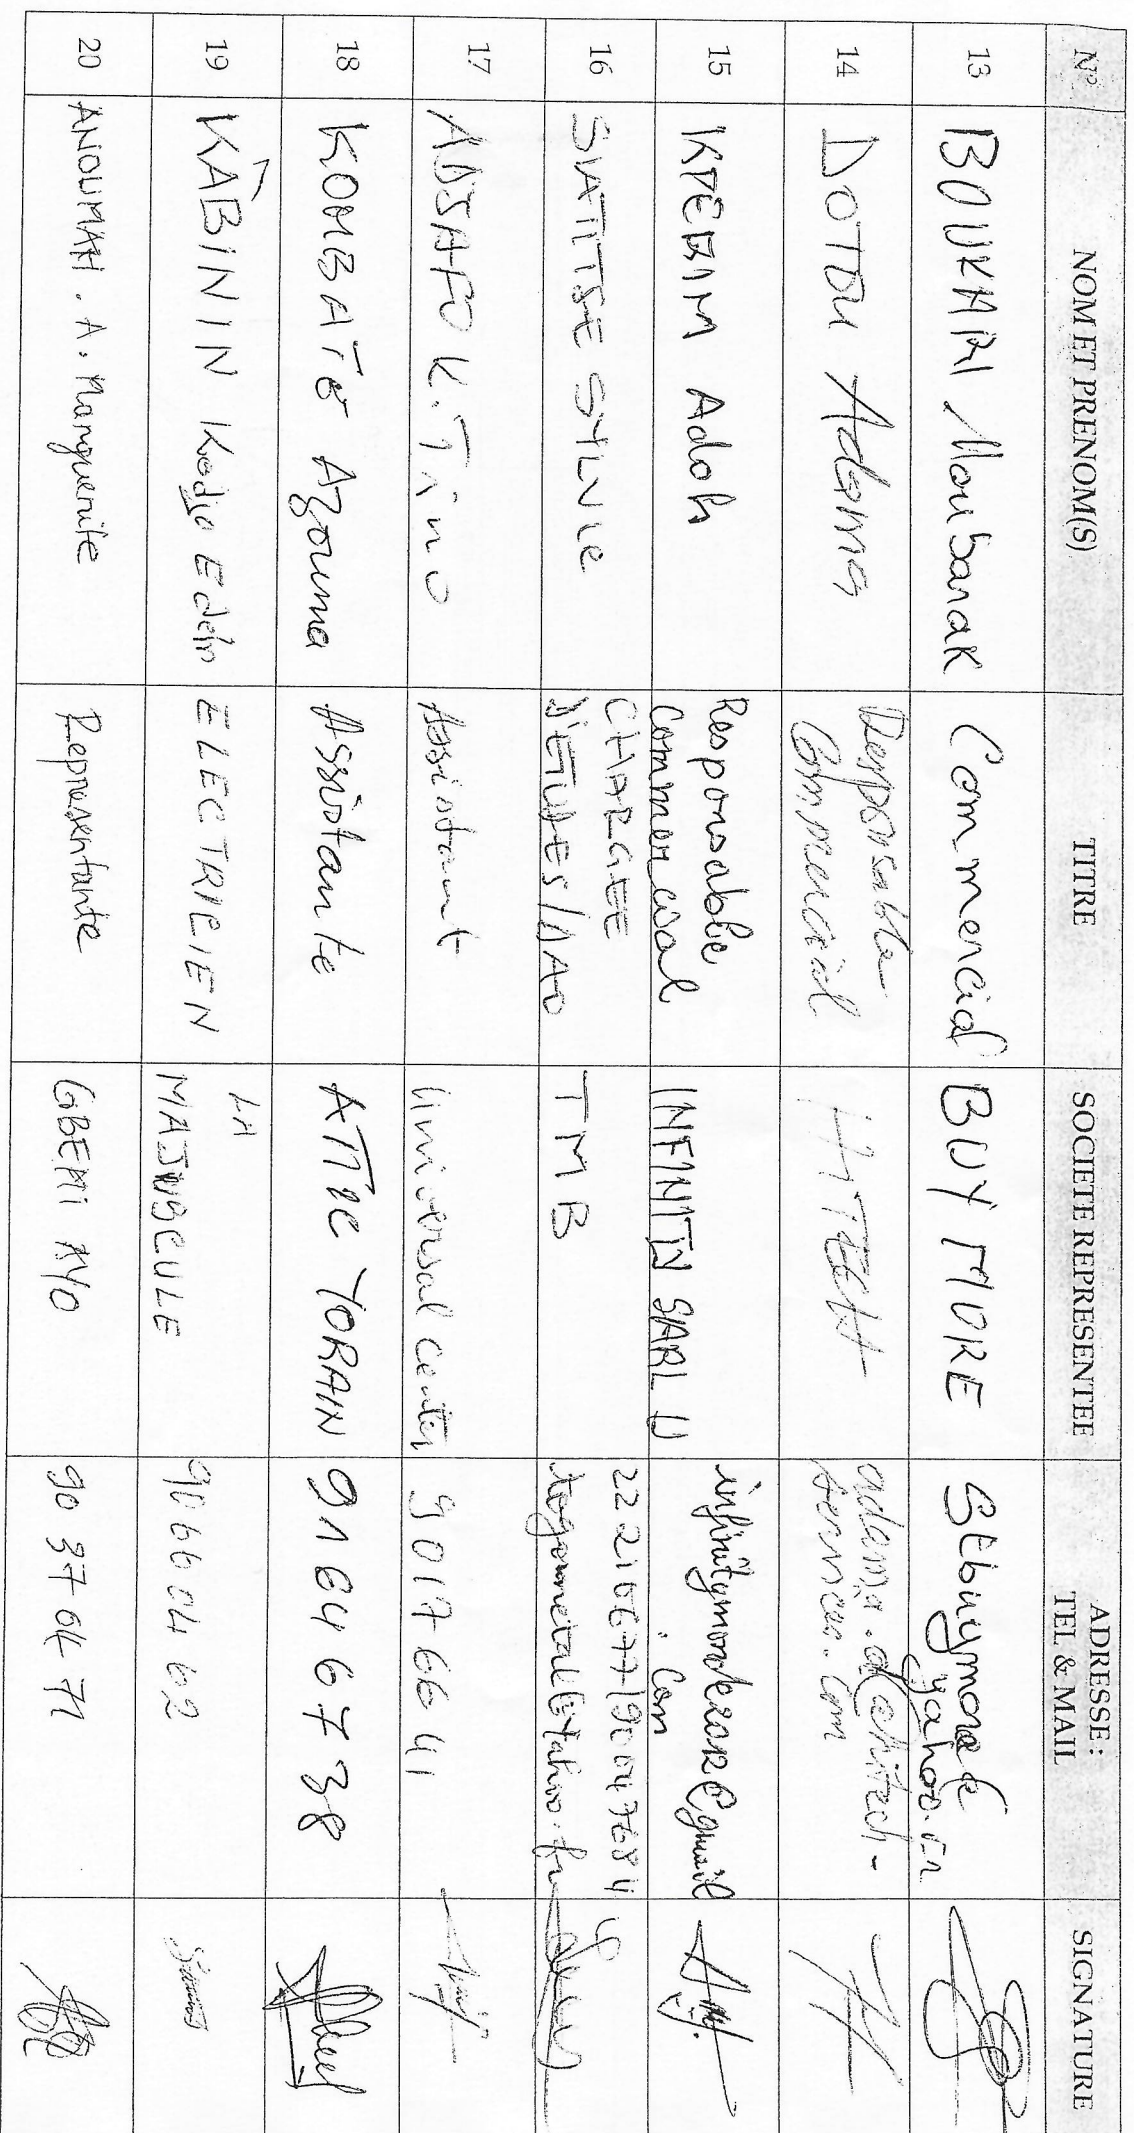 N° NOM ET PRENOM(S) TITRE SOCIETE REPRESENTEE ADRESSE : TEL & MAIL SIGNATURE
13 BOUKARI Moubarak Commercial BUY MORE Stbuymore@yahoo.fr
14 DOTDU Adama Responsable Commercial HITECH adama.d@hitech-services.com
15 KPEBIM Adoh Responsable Commercial INFINITY SARL U @gmail.com
16 SIATITSE SYLVIE CHARGEE D'ETUDES/DAO TMB 22210677/90047684 togometal@yahoo.fr
17 ADJAFO K. Tino Assistant Universal Center 90176641
18 KOMBATE Azouma Assistante ATTIC YORAIN 91646738
19 KABININ Kodjo Edoh ELECTRICIEN LA MAJUSCULE 90660462
20 ANOUMAH . A. Marguerite Representante GBEMI AYO 90 37 04 71